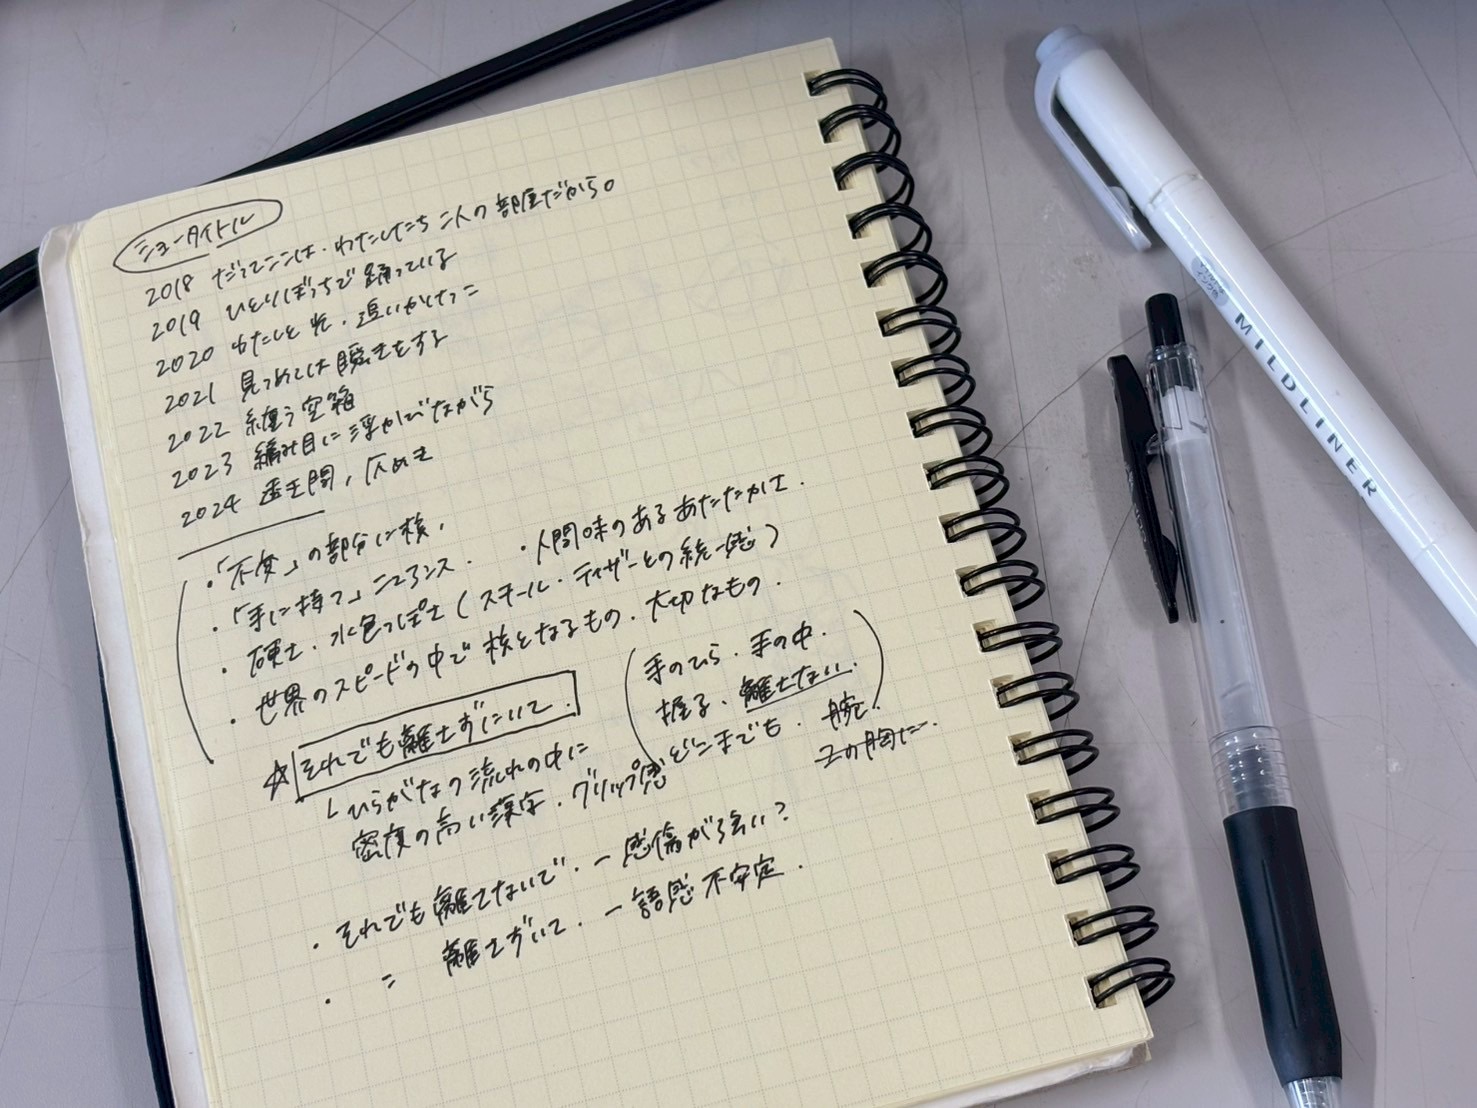 ショータイトル
2018 だってここは、わたしたち二人の部屋だから。
2019 ひとりぼっちで踊っている
2020 わたしと光、追いかけっこ
2021 見つめては瞬きをする
2022 纏う空箱
2023 編み目に浮かびながら
2024 透き間、仄めき
・「不変」の部分に核、
・人間味のあるあたたかさ、
・「手に持つ」ニュアンス、
・硬さ、水色っぽさ(スチール・ティザーとの統一感)
・世界のスピードの中で核となるもの、大切なもの、
☆それでも離さずにいて、
ひらがなの流れの中に
密度の高い漢字、グリップ感
手のひら、手の中、
握る、離さない、
どこまでも、腕、
この胸に、
・それでも離さないで、ー感傷が強い?
・〃 離さずいて、ー語感不安定、
MILDLINER